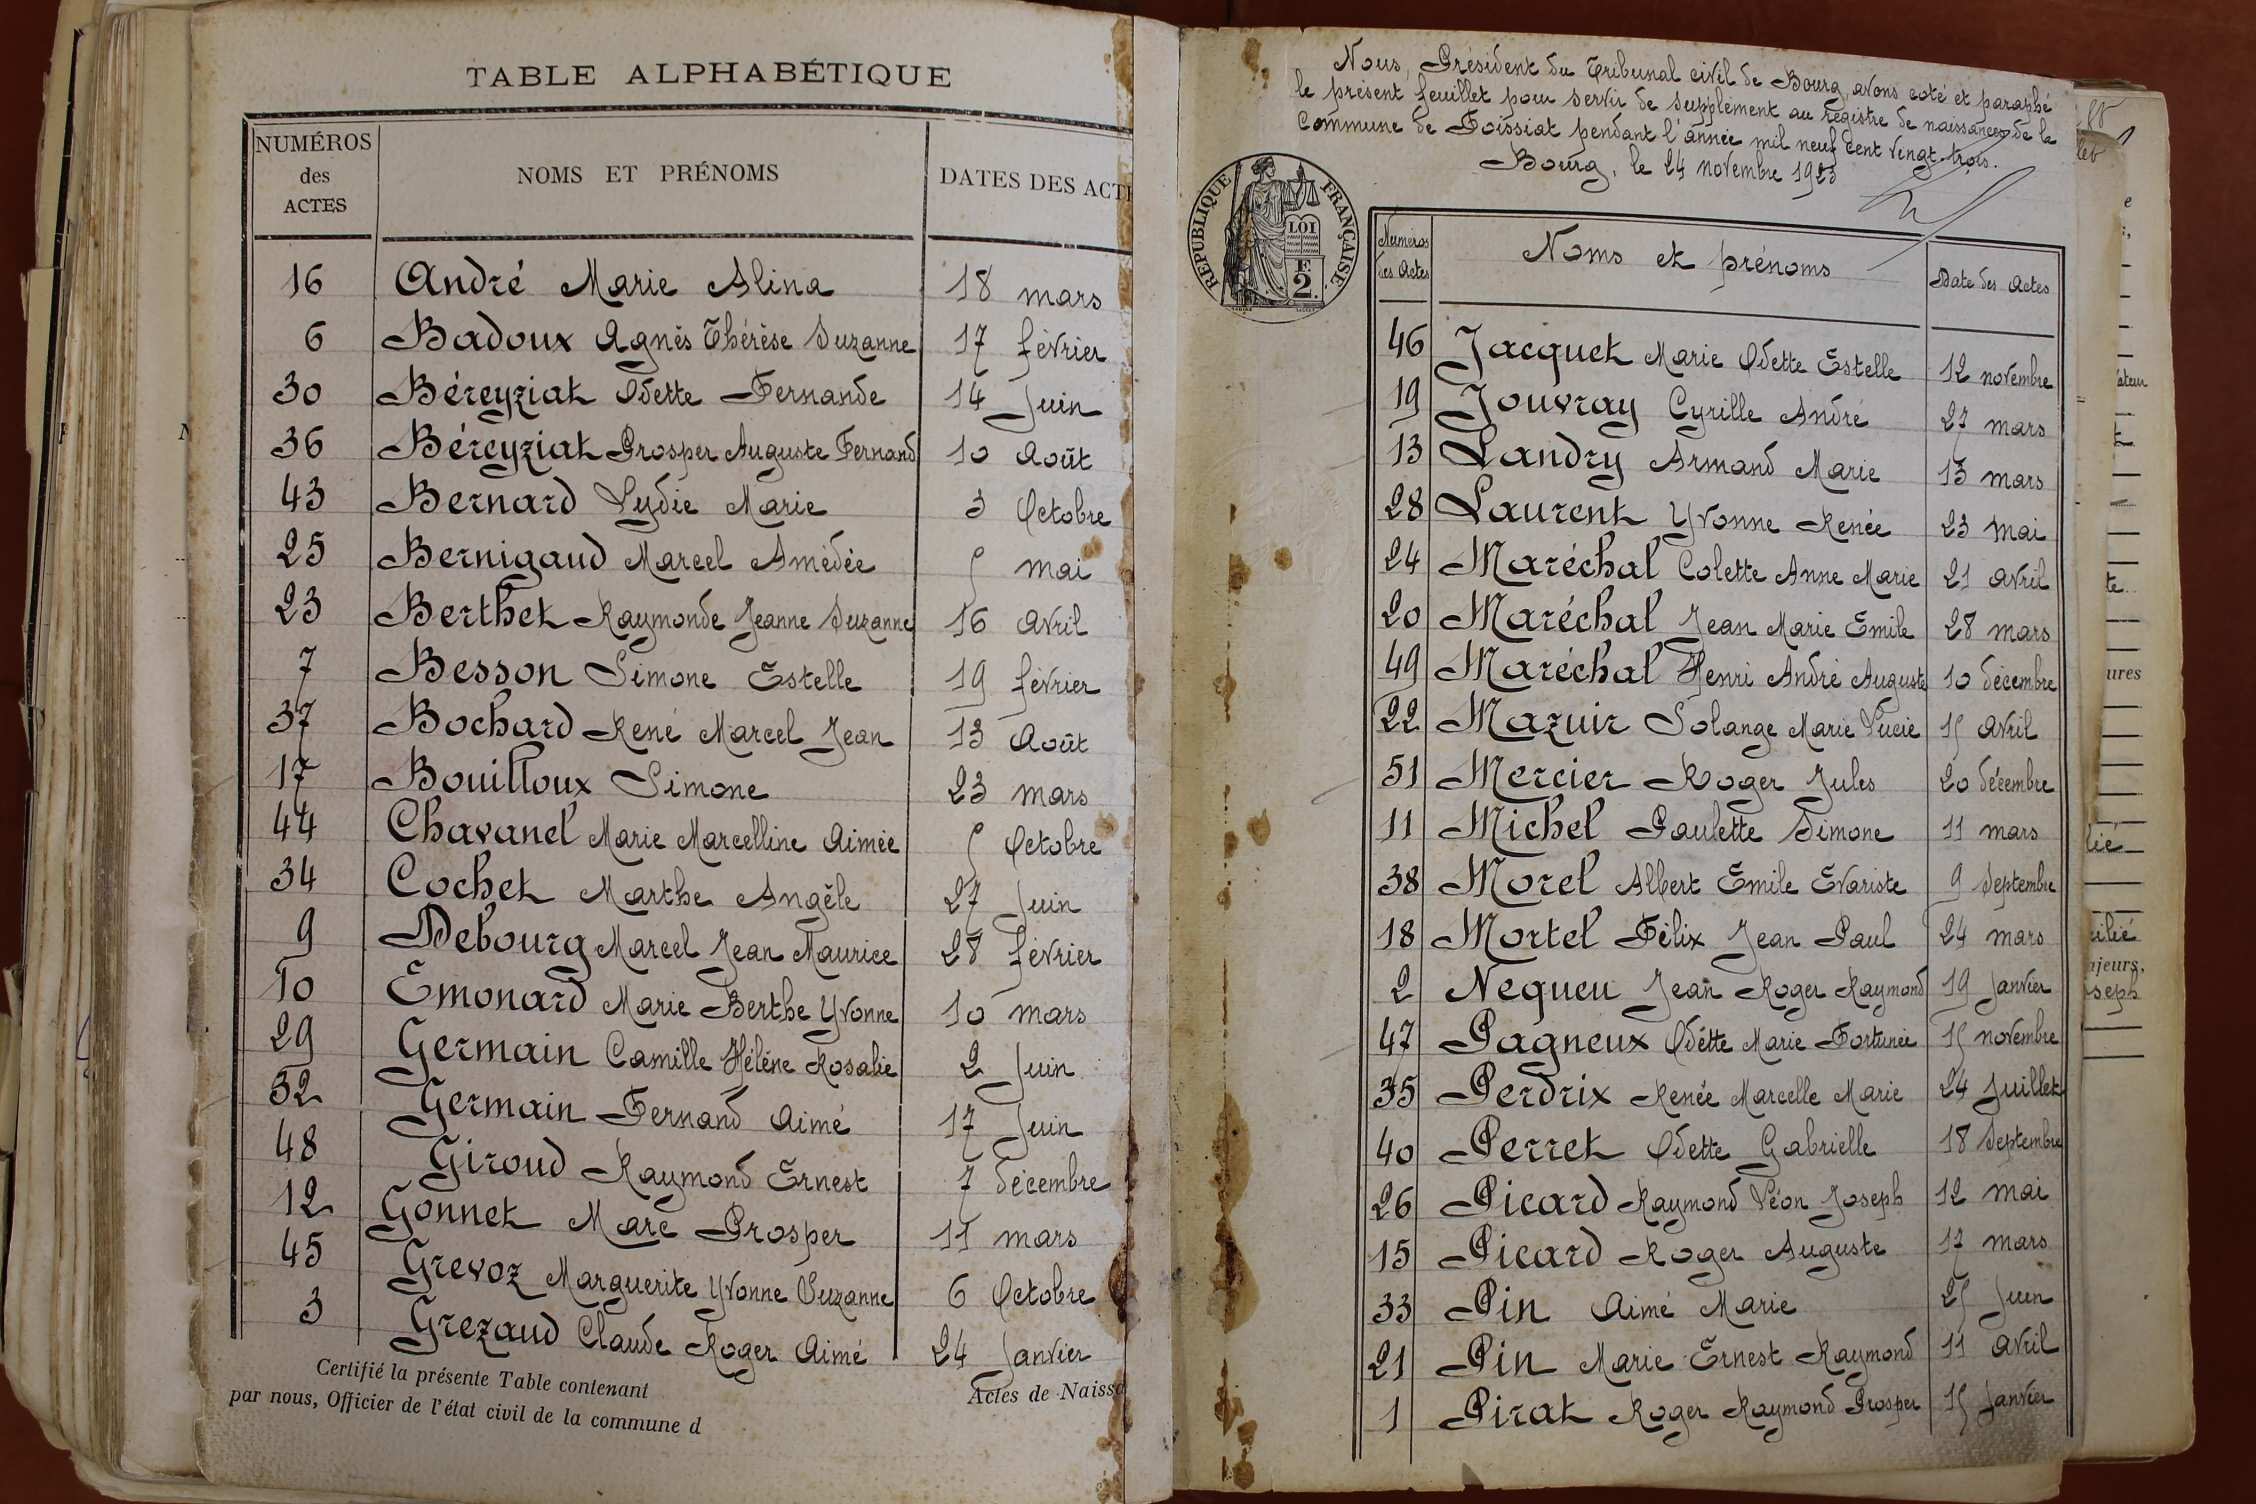 TABLE ALPHABÉTIQUE
NUMÉROS des ACTES NOMS ET PRÉNOMS DATES DES ACT
16 André Marie Alina 18 mars
6 Badoux Agnès Thérèse Suzanne 17 février
30 Béreyziat Odette Fernande 14 Juin
36 Béreyziat Prosper Auguste Fernand 10 Août
43 Bernard Lydie Marie 3 Octobre
25 Bernigaud Marcel Amédée 5 mai
23 Berthet Raymonde Jeanne Suzanne 16 avril
7 Besson Simone Estelle 19 février
37 Bochard René Marcel Jean 13 Août
17 Bouilloux Simone 23 mars
44 Chavanel Marie Marcelline Aimée 5 Octobre
34 Cochet Marthe Angèle 27 Juin
9 Debourg Marcel Jean Maurice 28 février
10 Emonard Marie Berthe Yvonne 10 mars
29 Germain Camille Hélène Rosalie 2 Juin
32 Germain Fernand Aimé 17 Juin
48 Giroud Raymond Ernest 7 décembre
12 Gonnet Marc Prosper 11 mars
45 Grevoz Marguerite Yvonne Suzanne 6 Octobre
3 Grezaud Claude Roger Aimé 24 Janvier
Certifié la présente Table contenant Actes de Naiss
par nous, Officier de l'état civil de la commune d
Nous, Président du Tribunal civil de Bourg, avons coté et paraphé
le présent feuillet pour servir de supplément au registre de naissances de la
Commune de Foissiat pendant l'année mil neuf cent vingt-trois.
Bourg, le 24 novembre 1923
RÉPUBLIQUE FRANÇAISE
LOI
F
2
Numéros des Actes Noms et prénoms Date des Actes
46 Jacquet Marie Odette Estelle 12 novembre
19 Jouvray Cyrille André 27 mars
13 Landry Armand Marie 13 mars
28 Laurent Yvonne Renée 23 mai
24 Maréchal Colette Anne Marie 21 avril
20 Maréchal Jean Marie Emile 28 mars
49 Maréchal Henri André Auguste 10 décembre
22 Mazuir Solange Marie Lucie 15 avril
51 Mercier Roger Jules 20 décembre
11 Michel Paulette Simone 11 mars
38 Morel Albert Emile Evariste 9 Septembre
18 Mortel Félix Jean Paul 24 mars
2 Nequeu Jean Roger Raymond 19 Janvier
47 Pagneux Odette Marie Fortunée 15 novembre
35 Perdrix Renée Marcelle Marie 24 Juillet
40 Perret Odette Gabrielle 18 Septembre
26 Picard Raymond Léon Joseph 12 mai
15 Picard Roger Auguste 17 mars
33 Pin Aimé Marie 25 Juin
21 Pin Marie Ernest Raymond 11 avril
1 Pirat Roger Raymond Prosper 15 Janvier